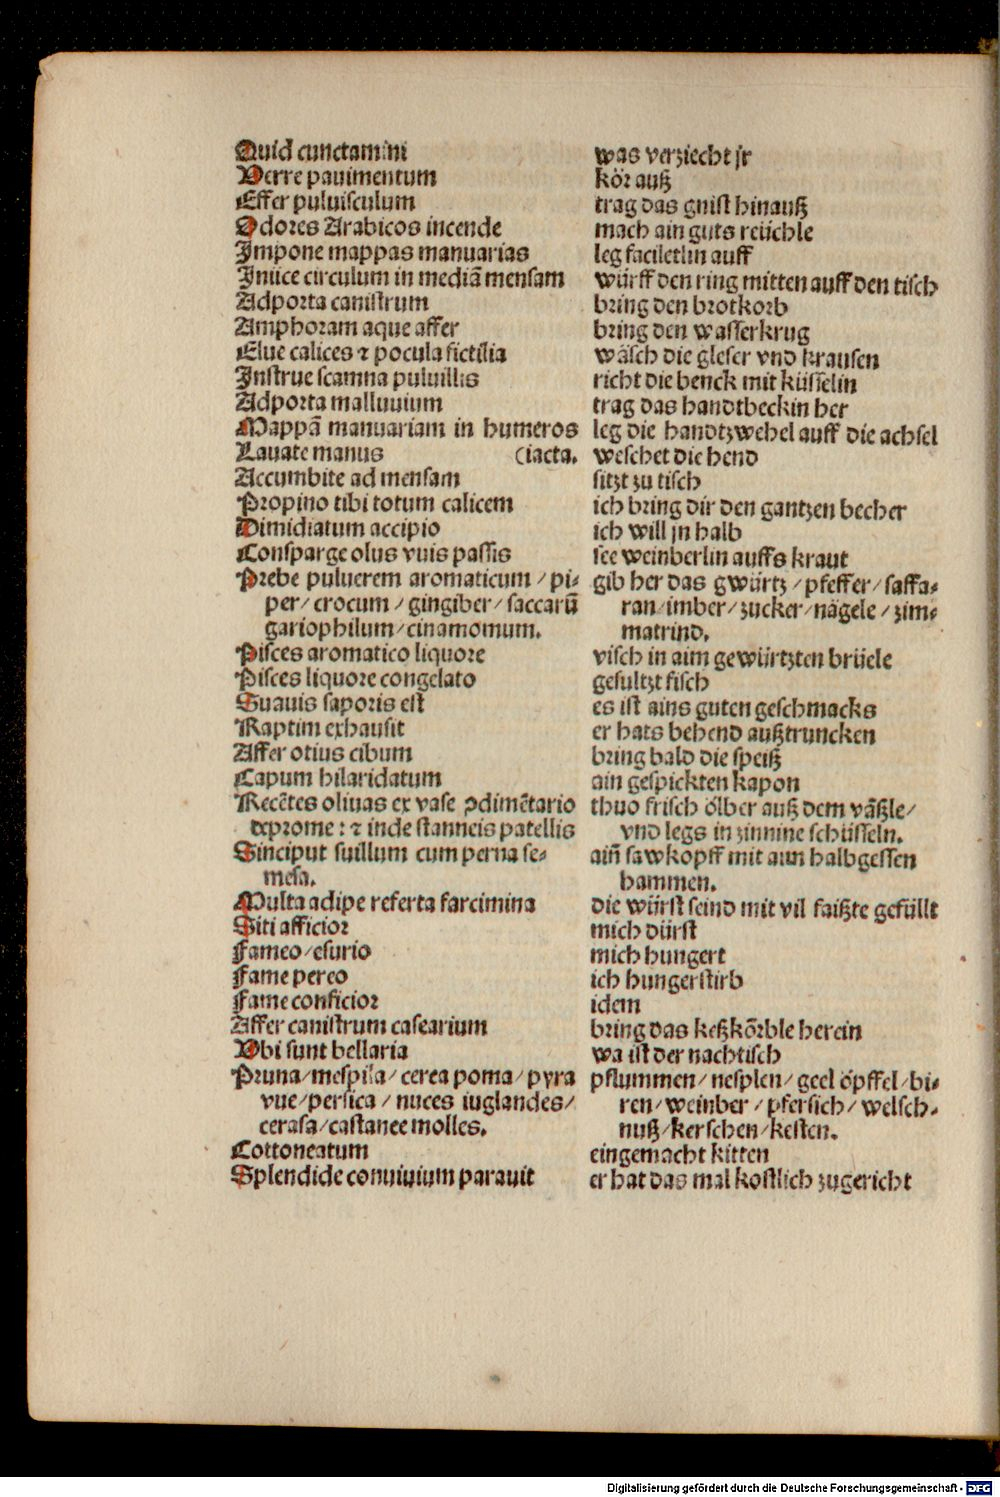 Quid cunctamini
Verre pauimentum
Effer puluisculum
Odores Arabicos incende
Impone mappas manuarias
Iniice circulum in mediā mensam
Adporta canistrum
Amphoram aque affer
Elue calices ⁊ pocula fictilia
Instrue scamna puluillis
Adporta malluuium
Mappā manuariam in humeros
Lauate manus (iacta.
Accumbite ad mensam
Propino tibi totum calicem
Dimidiatum accipio
Consparge olus vuis passis
Prebe puluerem aromaticum / pi-
per / crocum / gingiber / saccarū
gariophilum / cinamomum.
Pisces aromatico liquore
Pisces liquore congelato
Suauis saporis est
Raptim exhausit
Affer otius cibum
Capum hilaridatum
Recētes oliuas ex vase ꝯdimētario
deprome: ⁊ inde stanneis patellis
Sinciput suillum cum perna se-
mesa.
Multa adipe referta farcimina
Siti afficior
Fameo / esurio
Fame pereo
Fame conficior
Affer canistrum casearium
Vbi sunt bellaria
Pruna / mespila / cerea poma / pyra
vue / persica / nuces iuglandes /
cerasa / castanee molles.
Cottoneatum
Splendide conuiuium parauit
was verziecht jr
kör auß
trag das gnist hinauß
mach ain guts reüchle
leg faciletlin auff
würff den ring mitten auff den tisch
bring den brotkorb
bring den wasserkrug
wäsch die gleser vnd krausen
richt die benck mit küsselin
trag das handtbeckin her
leg die handtzwehel auff die achsel
weschet die hend
sitzt zu tisch
ich bring dir den gantzen becher
ich will jn halb
see weinberlin auffs kraut
gib her das gwürtz / pfeffer / saffa-
ran / imber / zucker / nägele / zim-
matrind.
visch in aim gewürtzten brüele
gesultzt fisch
es ist ains guten geschmacks
er hats behend außtruncken
bring bald die speiß
ain gespickten kapon
thuo frisch ölber auß dem väßle /
vnd legs in zinnine schüsseln.
ain sawkopff mit aun halbgessen
hammen.
die würst seind mit vil faißte gefüllt
mich dürst
mich hungert
ich hungerstirb
idem
bring das keßkörble herein
wa ist der nachtisch
pflummen / nesplen / geel öpffel / bi-
ren / weinber / pfersich / welsch-
nuß / kerschen / kesten.
eingemacht kitten
er hat das mal kostlich zugericht
Digitalisierung gefördert durch die Deutsche Forschungsgemeinschaft - DFG